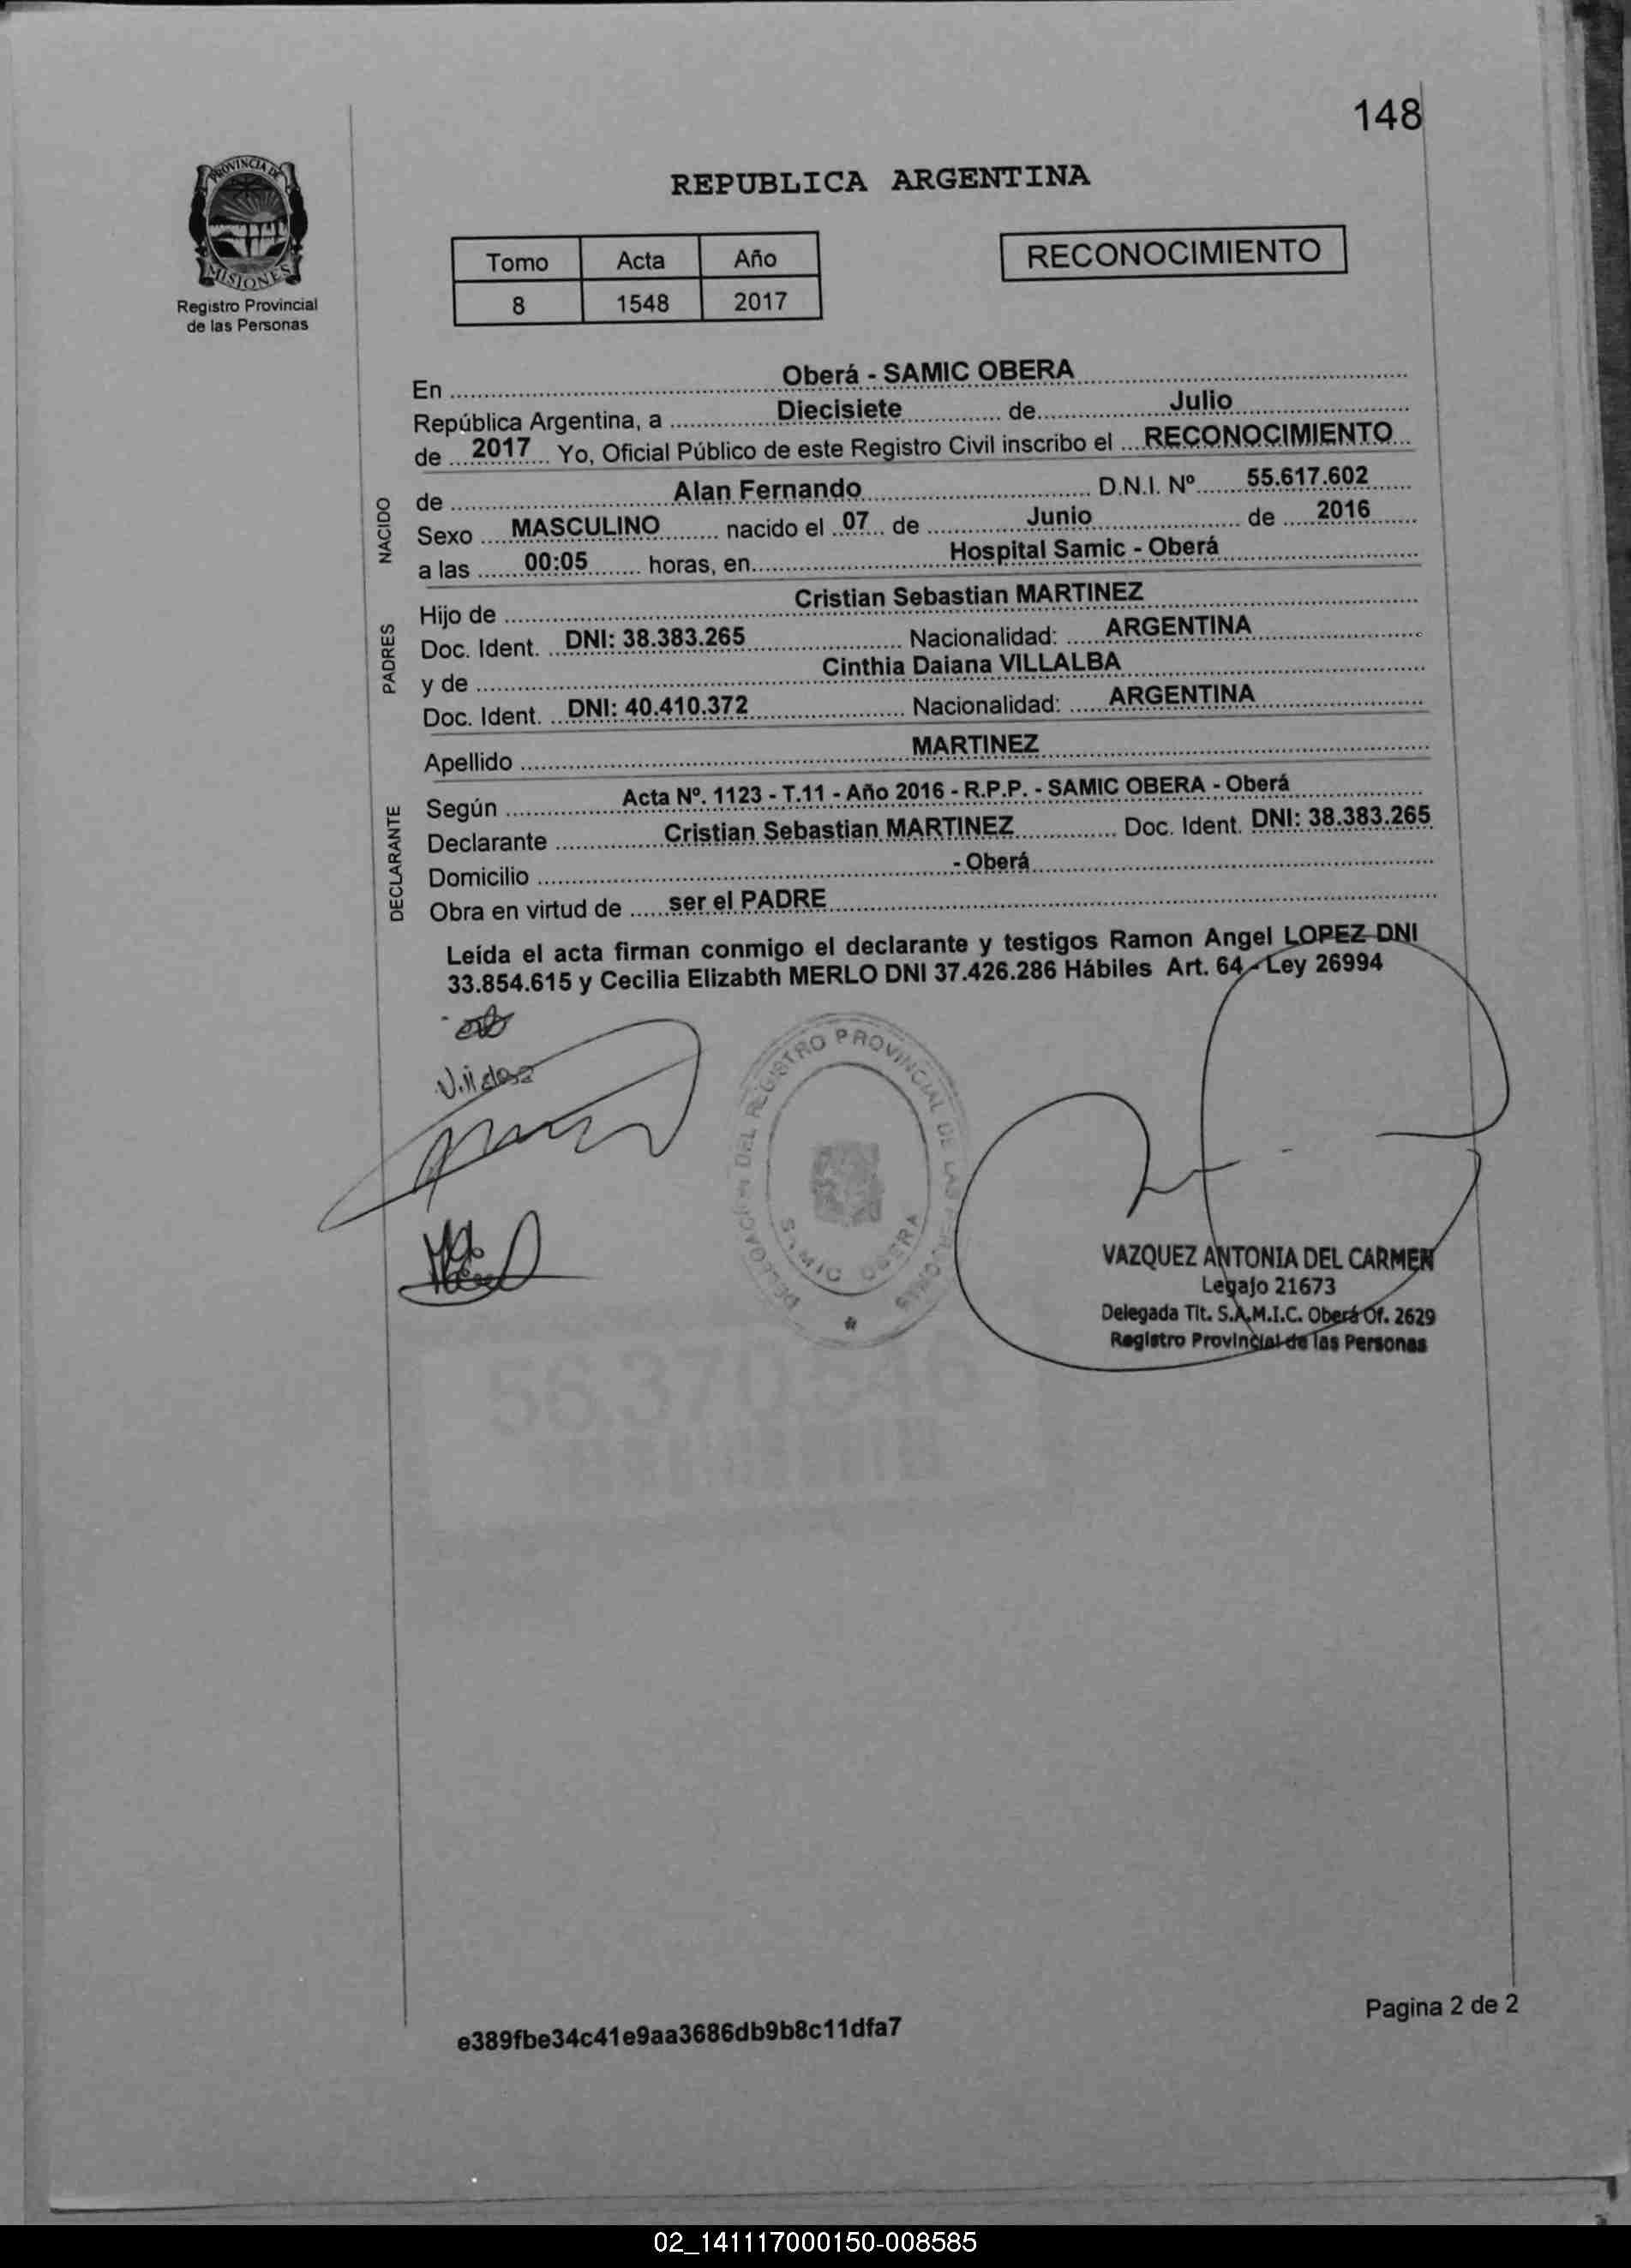 148
PROVINCIA DE
MISIONES
Registro Provincial
de las Personas
REPUBLICA ARGENTINA
Tomo Acta Año
8 1548 2017
RECONOCIMIENTO
En Oberá - SAMIC OBERA
República Argentina, a Diecisiete de Julio
de 2017 Yo, Oficial Público de este Registro Civil inscribo el RECONOCIMIENTO
NACIDO
de Alan Fernando D.N.I. Nº 55.617.602
Sexo MASCULINO nacido el 07 de Junio de 2016
a las 00:05 horas, en Hospital Samic - Oberá
PADRES
Hijo de Cristian Sebastian MARTINEZ
Doc. Ident. DNI: 38.383.265 Nacionalidad: ARGENTINA
y de Cinthia Daiana VILLALBA
Doc. Ident. DNI: 40.410.372 Nacionalidad: ARGENTINA
Apellido MARTINEZ
DECLARANTE
Según Acta Nº. 1123 - T.11 - Año 2016 - R.P.P. - SAMIC OBERA - Oberá
Declarante Cristian Sebastian MARTINEZ Doc. Ident. DNI: 38.383.265
Domicilio - Oberá
Obra en virtud de ser el PADRE
Leída el acta firman conmigo el declarante y testigos Ramon Angel LOPEZ DNI
33.854.615 y Cecilia Elizabth MERLO DNI 37.426.286 Hábiles Art. 64 - Ley 26994
DELEGACION DEL REGISTRO PROVINCIAL DE LAS PERSONAS
SAMIC OBERA
VAZQUEZ ANTONIA DEL CARMEN
Legajo 21673
Delegada Tit. S.A.M.I.C. Oberá Of. 2629
Registro Provincial de las Personas
Pagina 2 de 2
e389fbe34c41e9aa3686db9b8c11dfa7
02_141117000150-008585